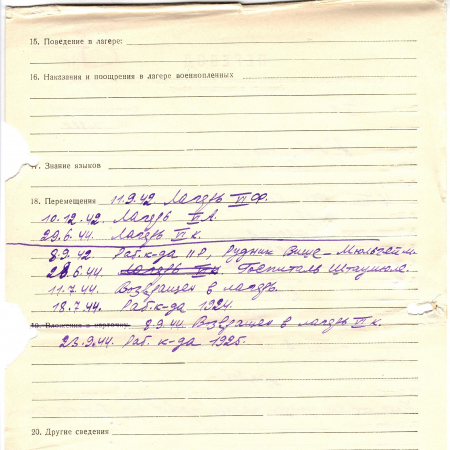 15. Поведение в лагере:
16. Наказания и поощрения в лагере военнопленных
17. Знание языков
18. Перемещения 11.9.42 Лагерь VI Ф.
10.12.42 Лагерь VI А.
29.6.44. Лагерь VI К.
8.9.42 Раб. к-да 11 Р, Рудник Вице-Мюльгейм.
28.6.44. Лагерь VI К Госпиталь Штаумюле.
11.7.44. Возвращен в лагерь.
18.7.44. Раб. к-да 1924.
19. Вложения в карточку 8.9.44. Возвращен в лагерь VI К.
23.9.44. Раб. к-да 1925.
20. Другие сведения